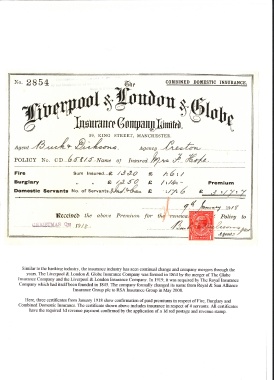 No. 2854 COMBINED DOMESTIC INSURANCE.
The
Liverpool & London & Globe
Insurance Company Limited,
59, KING STREET, MANCHESTER.
Agent Buck & Dicksons Agency Preston
POLICY No. CD. 65815 Name of Insured Mrs F Hope
Fire Sum Insured £ 1330 1.6.1
Burglary " £ 1350 Premium
Domestic Servants No. of Servants 17.6 £ 3.17.7
9th January 1918
Received the above Premium for the renewal Policy to
CHRISTMAS 1918
Agents
Similar to the banking industry, the insurance industry has seen continual change and company mergers through the
years. The Liverpool & London & Globe Insurance Company was formed in 1864 by the merger of The Globe
Insurance Company and the Liverpool & London Insurance Company. In 1919, it was acquired by The Royal Insurance
Company which had itself been founded in 1845. The company formally changed its name from Royal & Sun Alliance
Insurance Group plc to RSA Insurance Group in May 2008.
Here, three certificates from January 1918 show confirmation of paid premiums in respect of Fire, Burglary and
Combined Domestic Insurance. The certificate shown above includes insurance in respect of 4 servants. All certificates
have the required 1d reward payment confirmed by the application of a 1d red postage and revenue stamp.